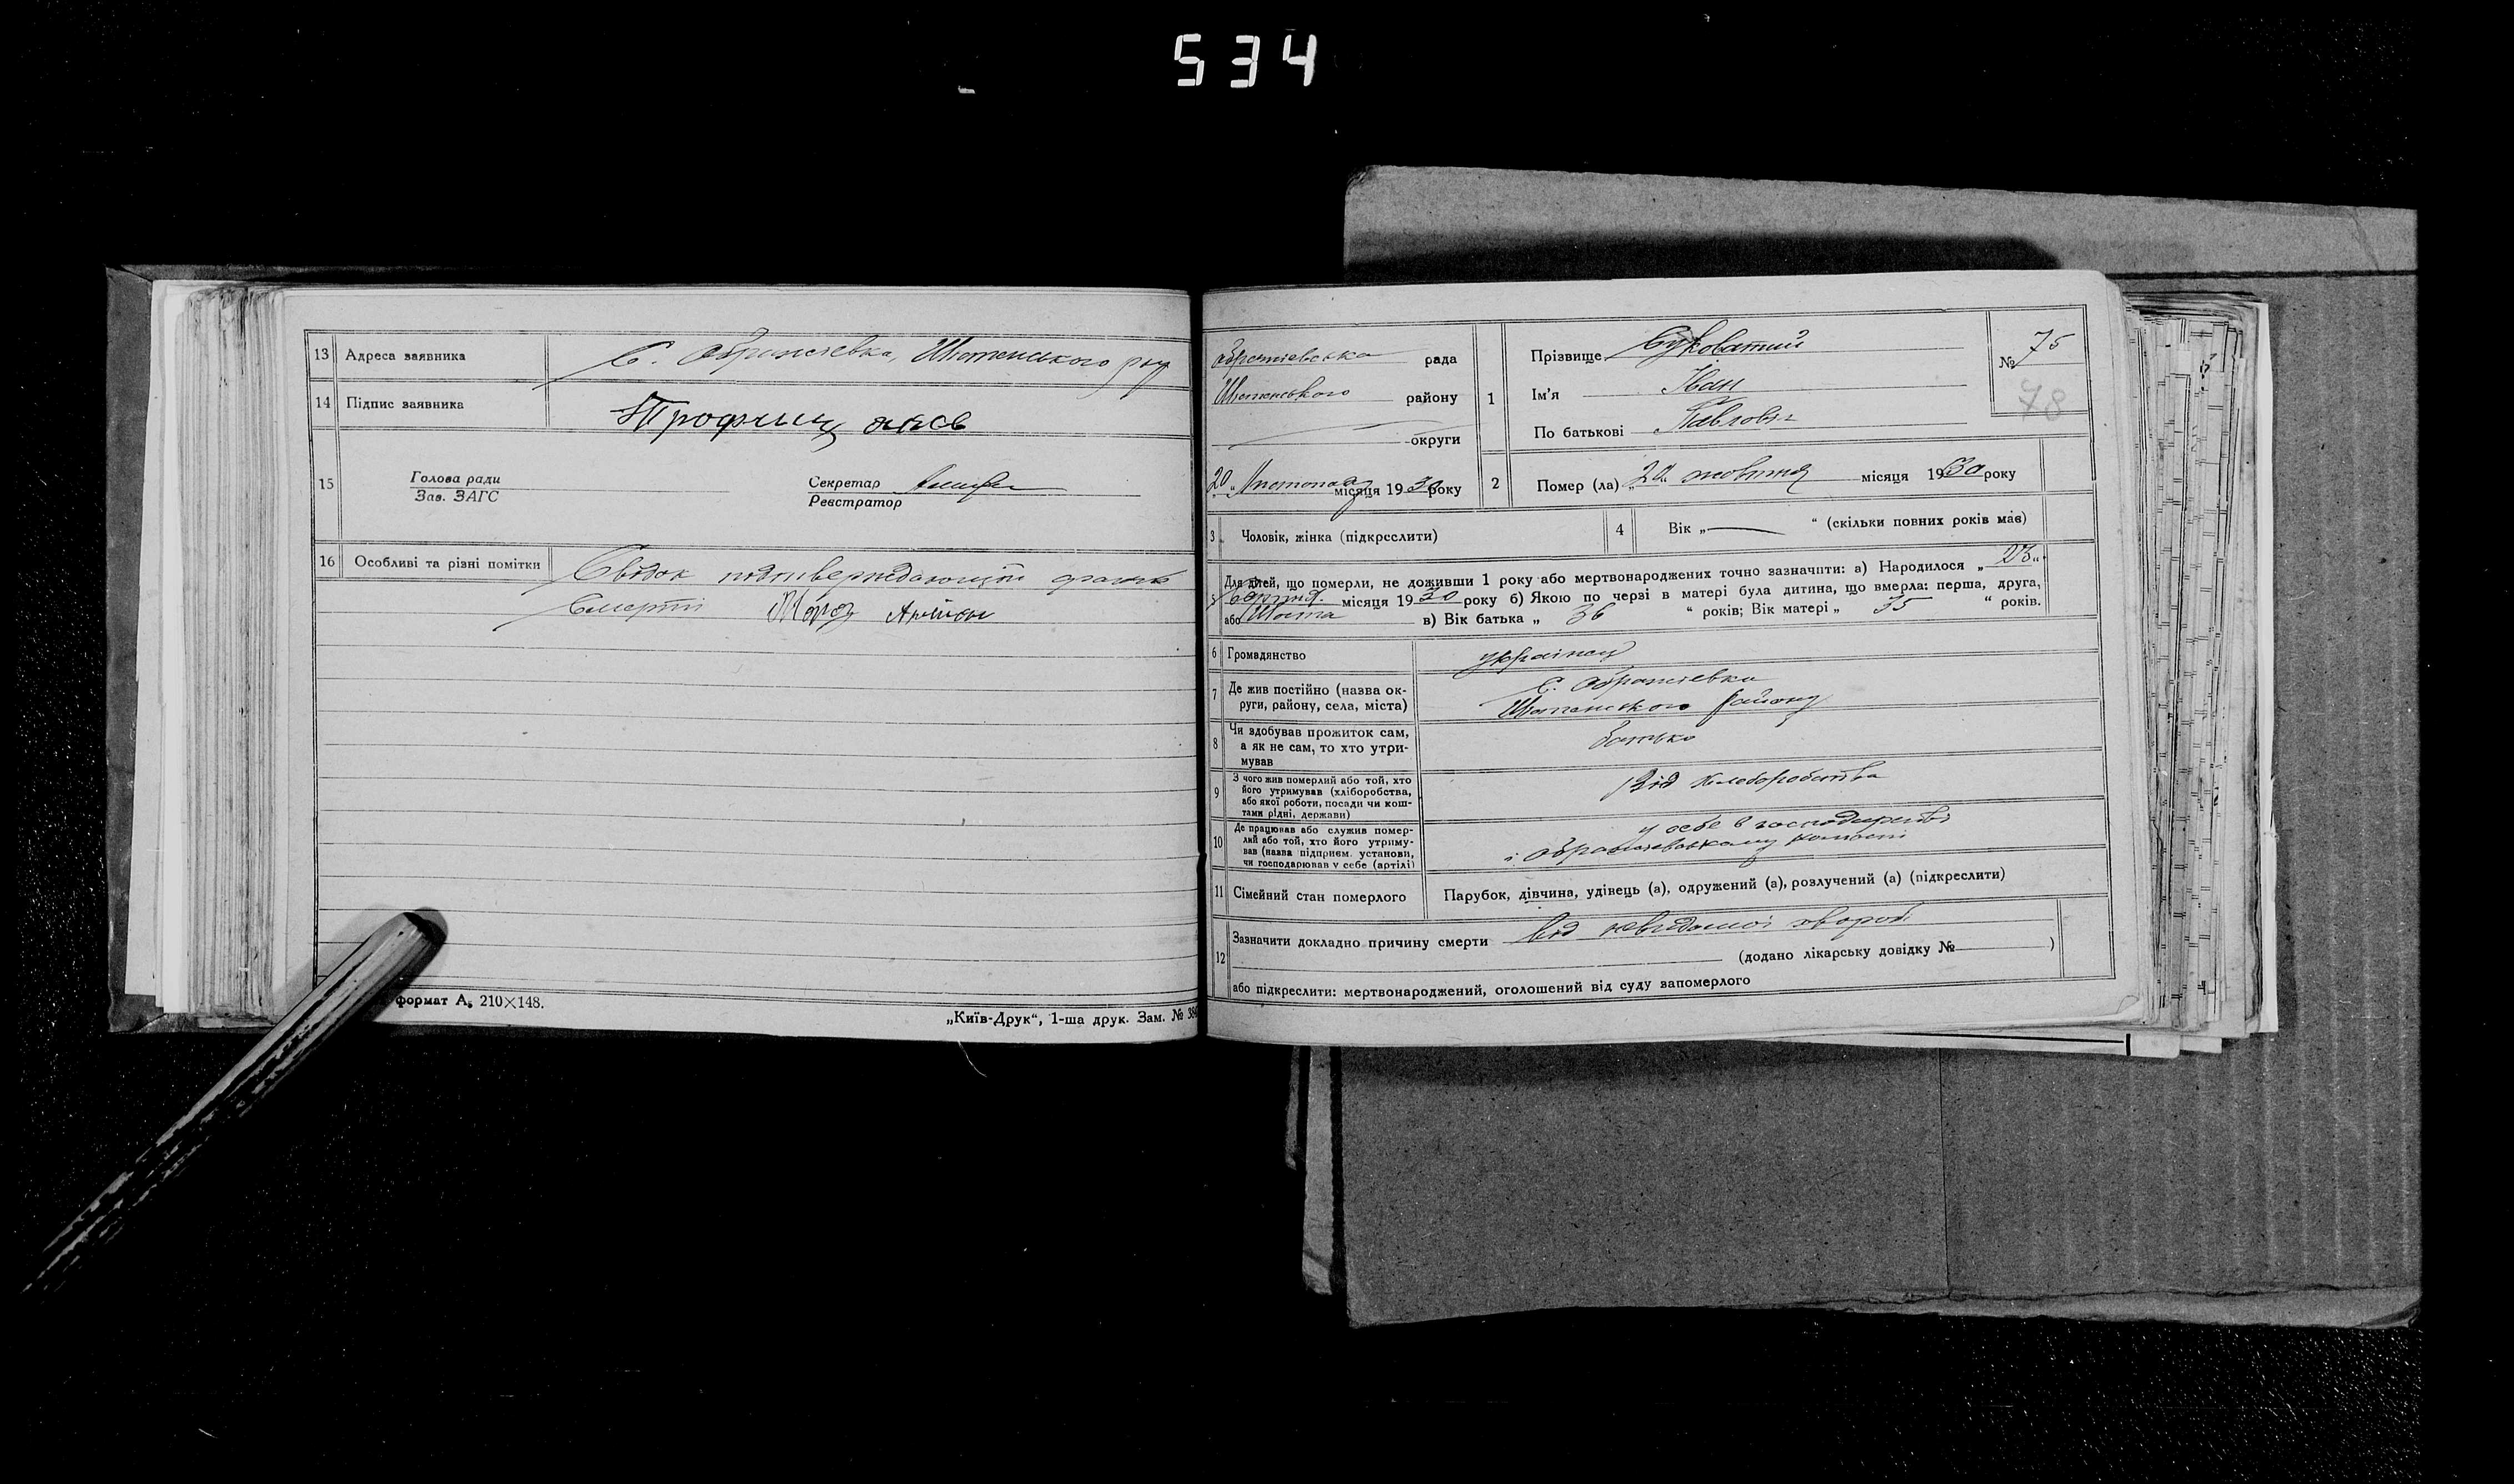 534
13 Адреса заявника С. Ображиевка, Шостенського рну
14 Підпис заявника
15 Голова ради Зав. ЗАГС Секретар Реєстратор
16 Особливі та різні помітки Свідок
Смерті Мороз
формат А₅ 210×148.
„Київ-Друк“, 1-ша друк. Зам. №
рада
Шостенського району
округи
20 „ місяця 1930 року
1 Прізвище Суковатий
Ім'я Іван
По батькові Павлович
№ 75
78
2 Помер (ла) „ жовтня місяця 1930 року
3 Чоловік, жінка (підкреслити)
4 Вік „ “ (скільки повних років має)
5 Для дітей, що померли, не доживши 1 року або мертвонароджених точно зазначити: а) Народилося „23„
Серпня місяця 1930 року б) Якою по черзі в матері була дитина, що вмерла: перша, друга,
або Шоста в) Вік батька „ 36 “ років; Вік матері „ 35 “ років.
6 Громадянство українец
7 Де жив постійно (назва округи, району, села, міста) С. Ображиевка
Шостенського Району
8 Чи вдобував прожиток сам,
а як не сам, то хто утримував батько
9 З чого жив померлий або той, хто
його утримував (хліборобства,
або якої роботи, посади чи коштами рідні, держави) Від хлеборобства
10 Де працював або служив померлий або той, хто його утримував (назва підприєм. установи,
чи господарював у себе (артілі) у себе в господарстві
11 Сімейний стан померлого Парубок, дівчина, удівець (а), одружений (а), розлучений (а) (підкреслити)
12 Зазначити докладно причину смерти Від невидомоі хвороб
(додано лікарську довідку № )
або підкреслити: мертвонароджений, оголошений від суду запомерлого